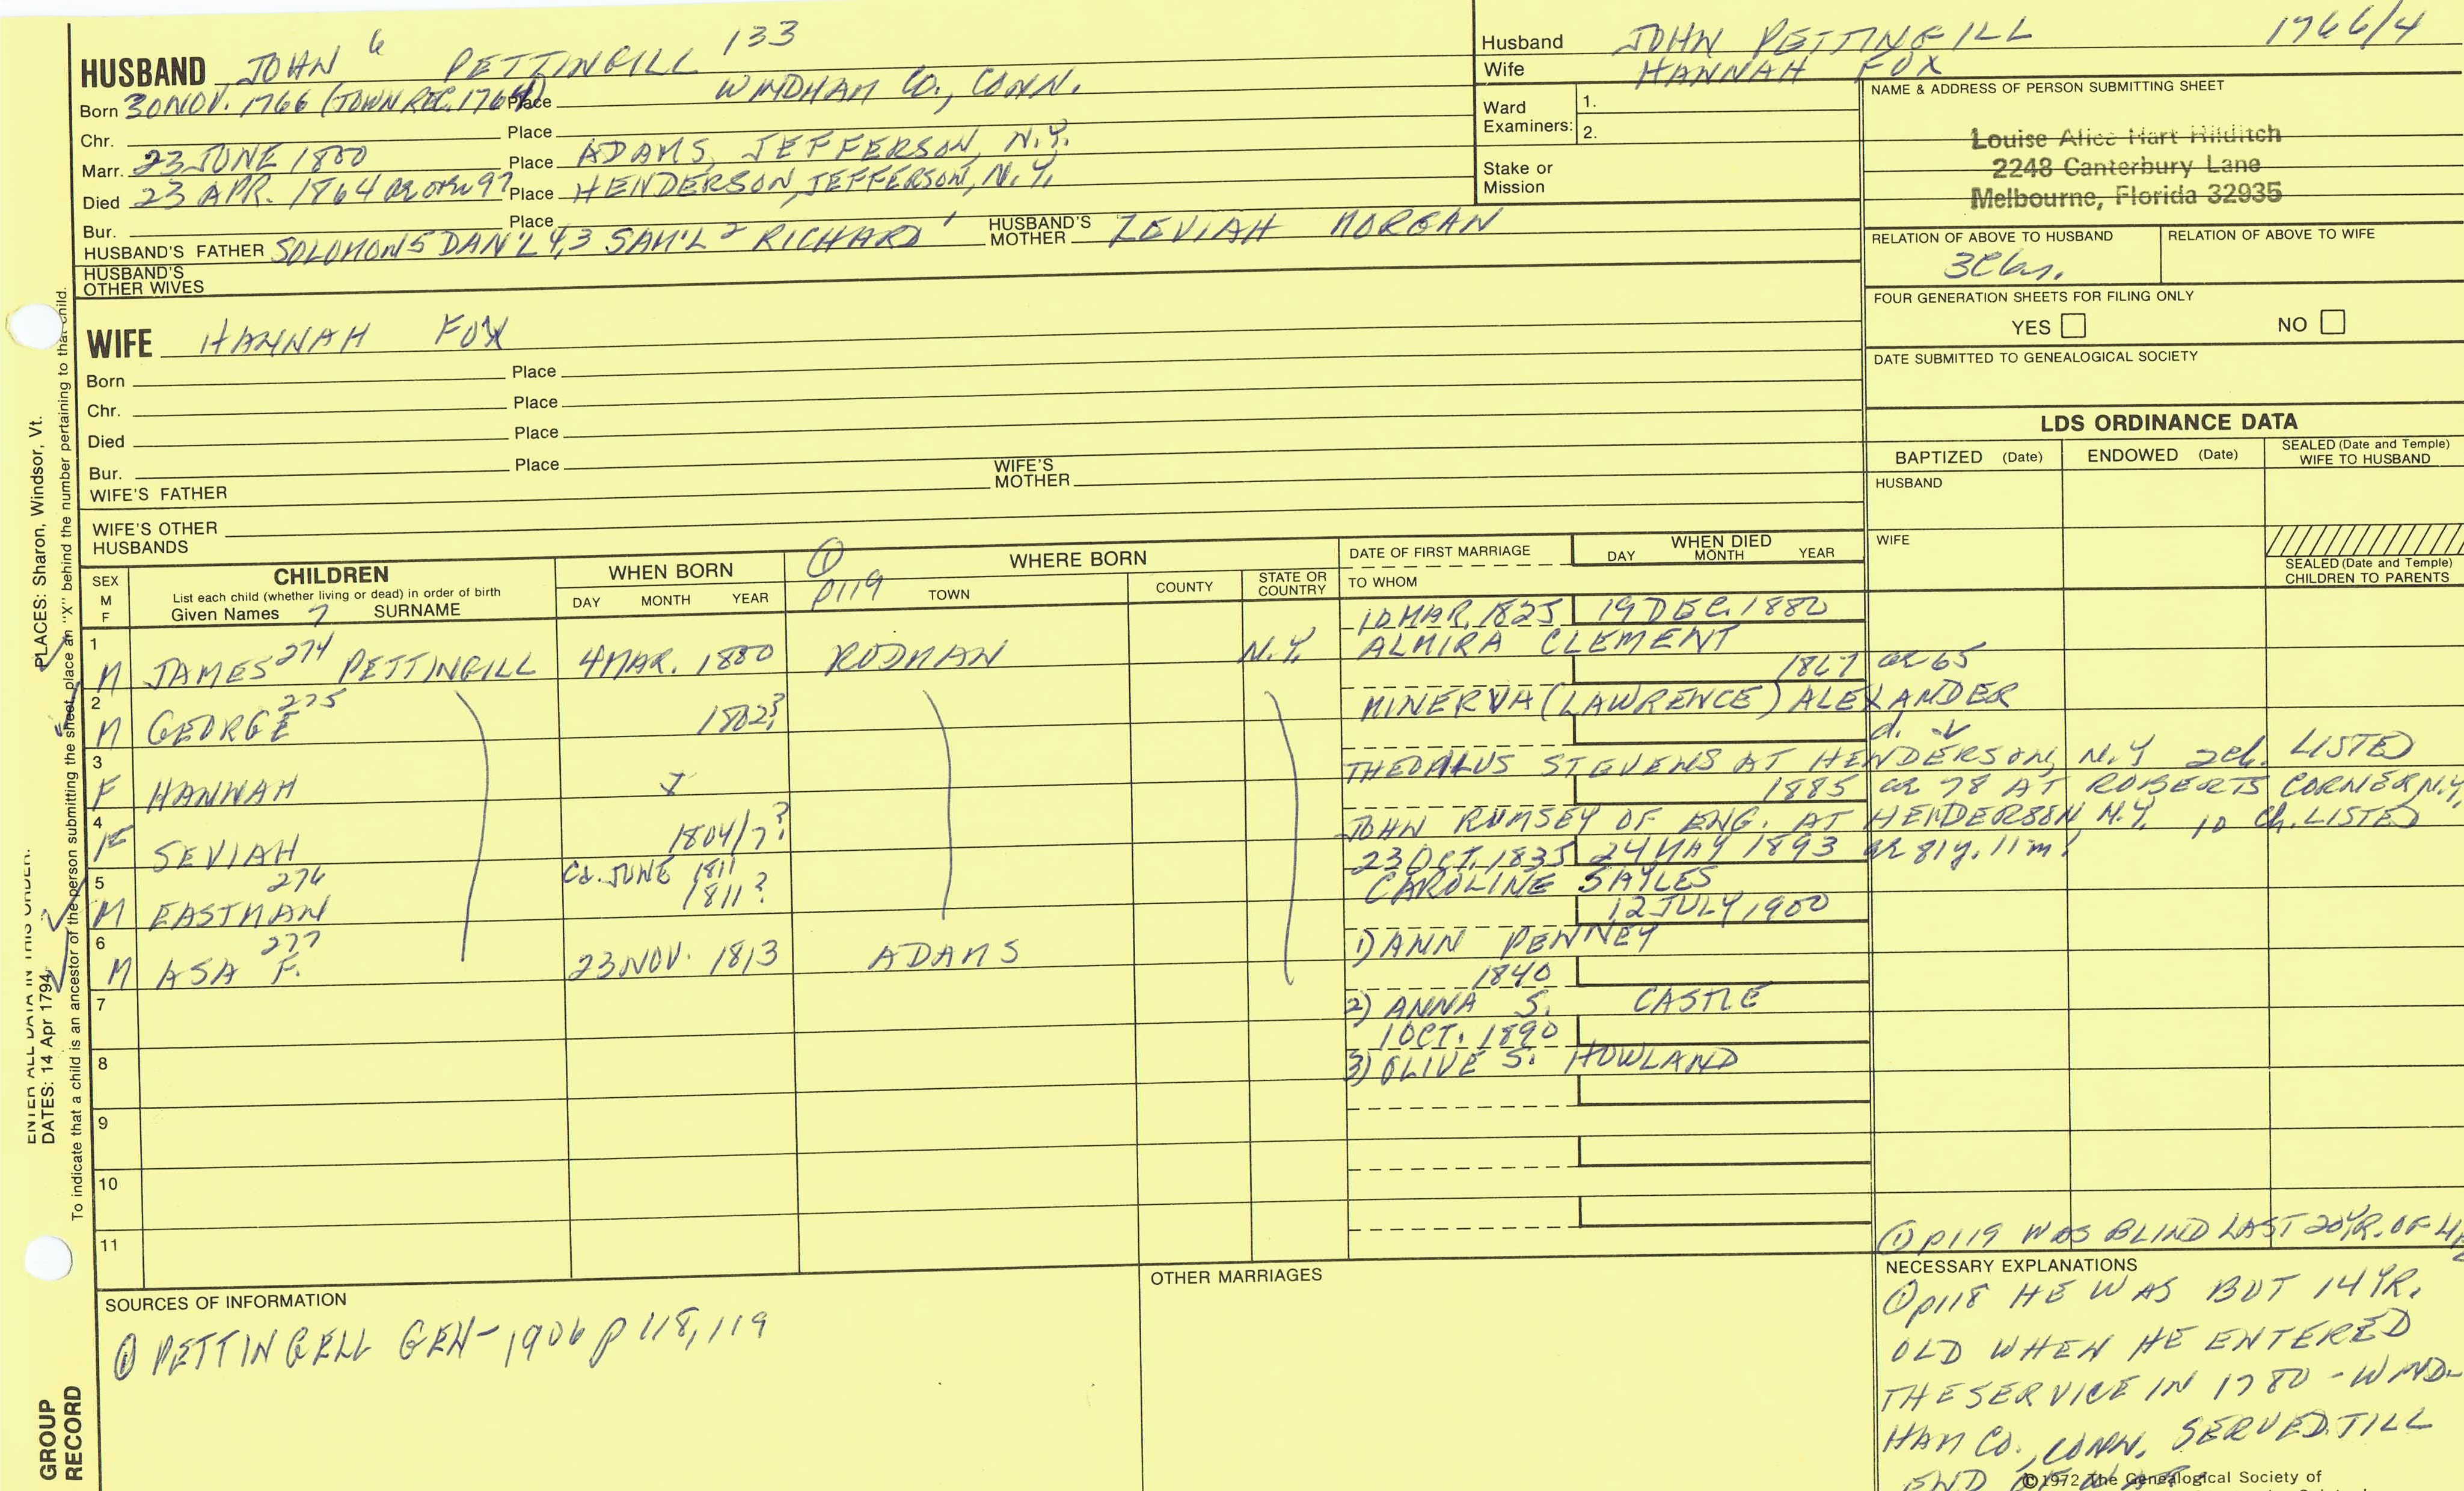 HUSBAND JOHN 6 PETTINGILL 133
Born 30 NOV. 1766 (TOWN REC. 1764) Place WINDHAM CO., CONN.
Chr. Place
Marr. 23 JUNE 1800 Place ADAMS, JEFFERSON, N.Y.
Died 23 APR. 1864 ae 97 Place HENDERSON, JEFFERSON, N.Y.
Bur. Place
HUSBAND'S FATHER SOLOMON 5 DAN'L 4,3 SAM'L 2 RICHARD 1 HUSBAND'S MOTHER ZEVIAH MORGAN
HUSBAND'S OTHER WIVES
Husband JOHN PETTINGILL 1766/4
Wife HANNAH FOX
Ward Examiners: 1.
2.
Stake or Mission
NAME & ADDRESS OF PERSON SUBMITTING SHEET
Louise Alice Hart Hilditch
2248 Canterbury Lane
Melbourne, Florida 32935
RELATION OF ABOVE TO HUSBAND RELATION OF ABOVE TO WIFE
FOUR GENERATION SHEETS FOR FILING ONLY
YES NO
DATE SUBMITTED TO GENEALOGICAL SOCIETY
WIFE HANNAH FOX
Born Place
Chr. Place
Died Place
Bur. Place
WIFE'S FATHER WIFE'S MOTHER
WIFE'S OTHER HUSBANDS
LDS ORDINANCE DATA
BAPTIZED (Date) ENDOWED (Date) SEALED (Date and Temple) WIFE TO HUSBAND
HUSBAND
WIFE
SEALED (Date and Temple) CHILDREN TO PARENTS
SEX M F
CHILDREN
List each child (whether living or dead) in order of birth
Given Names 7 SURNAME
WHEN BORN
DAY MONTH YEAR
① p119
WHERE BORN
TOWN COUNTY STATE OR COUNTRY
DATE OF FIRST MARRIAGE
TO WHOM
WHEN DIED
DAY MONTH YEAR
10 MAR. 1825 19 DEC. 1880
1 M JAMES 274 PETTINGILL 4 MAR. 1800 RODMAN N.Y. ALMIRA CLEMENT
1867 ae 65
2 M GEORGE 275 1802? MINERVA (LAWRENCE) ALEXANDER
d. ↓
3 F HANNAH THEOPILUS STEVENS AT HENDERSON, N.Y 2ch. LISTED
1885 ae 78 AT ROBERTS CORNER N.Y.
4 F SEVIAH 1804/7? JOHN RUMSEY OF ENG. AT HENDERSON N.Y. 10 Ch. LISTED
Ca. JUNE 1811 23 OCT. 1835 24 MAY 1893 ae 81y. 11m.
5 M EASTMAN 276 1811? CAROLINE SAYLES
12 JULY 1900
6 M ASA F. 277 23 NOV. 1813 ADAMS 1) ANN PENNEY
1840
7 2) ANNA S. CASTLE
1 OCT. 1890
8 3) OLIVE S. HOWLAND
9
10
11
① p119 WAS BLIND LAST 20 YR. OF
SOURCES OF INFORMATION
① PETTINGELL GEN- 1906 p 118, 119
OTHER MARRIAGES
NECESSARY EXPLANATIONS
① p118 HE WAS BUT 14 YR.
OLD WHEN HE ENTERED
THE SERVICE IN 1780 - WIND-
HAM CO., CONN. SERVED TILL
END OF WAR
©1972 The Genealogical Society of
PLACES: Sharon, Windsor, Vt.
ENTER ALL DATA IN THIS ORDER:
DATES: 14 Apr 1794
To indicate that a child is an ancestor of the person submitting the sheet, place an "X" behind the number pertaining to that child.
GROUP RECORD